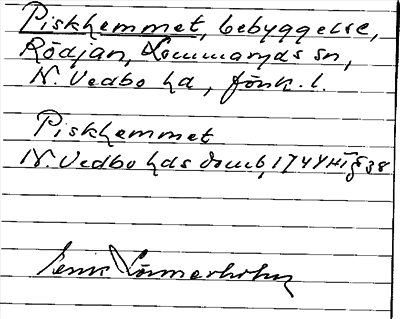 Piskhemmet, bebyggelse,
Rödjan, Lommaryds sn,
N. Vedbo hd, Jönk. l.
Piskhemmet
N. Vedbo hds domb, 1744 HT § 38